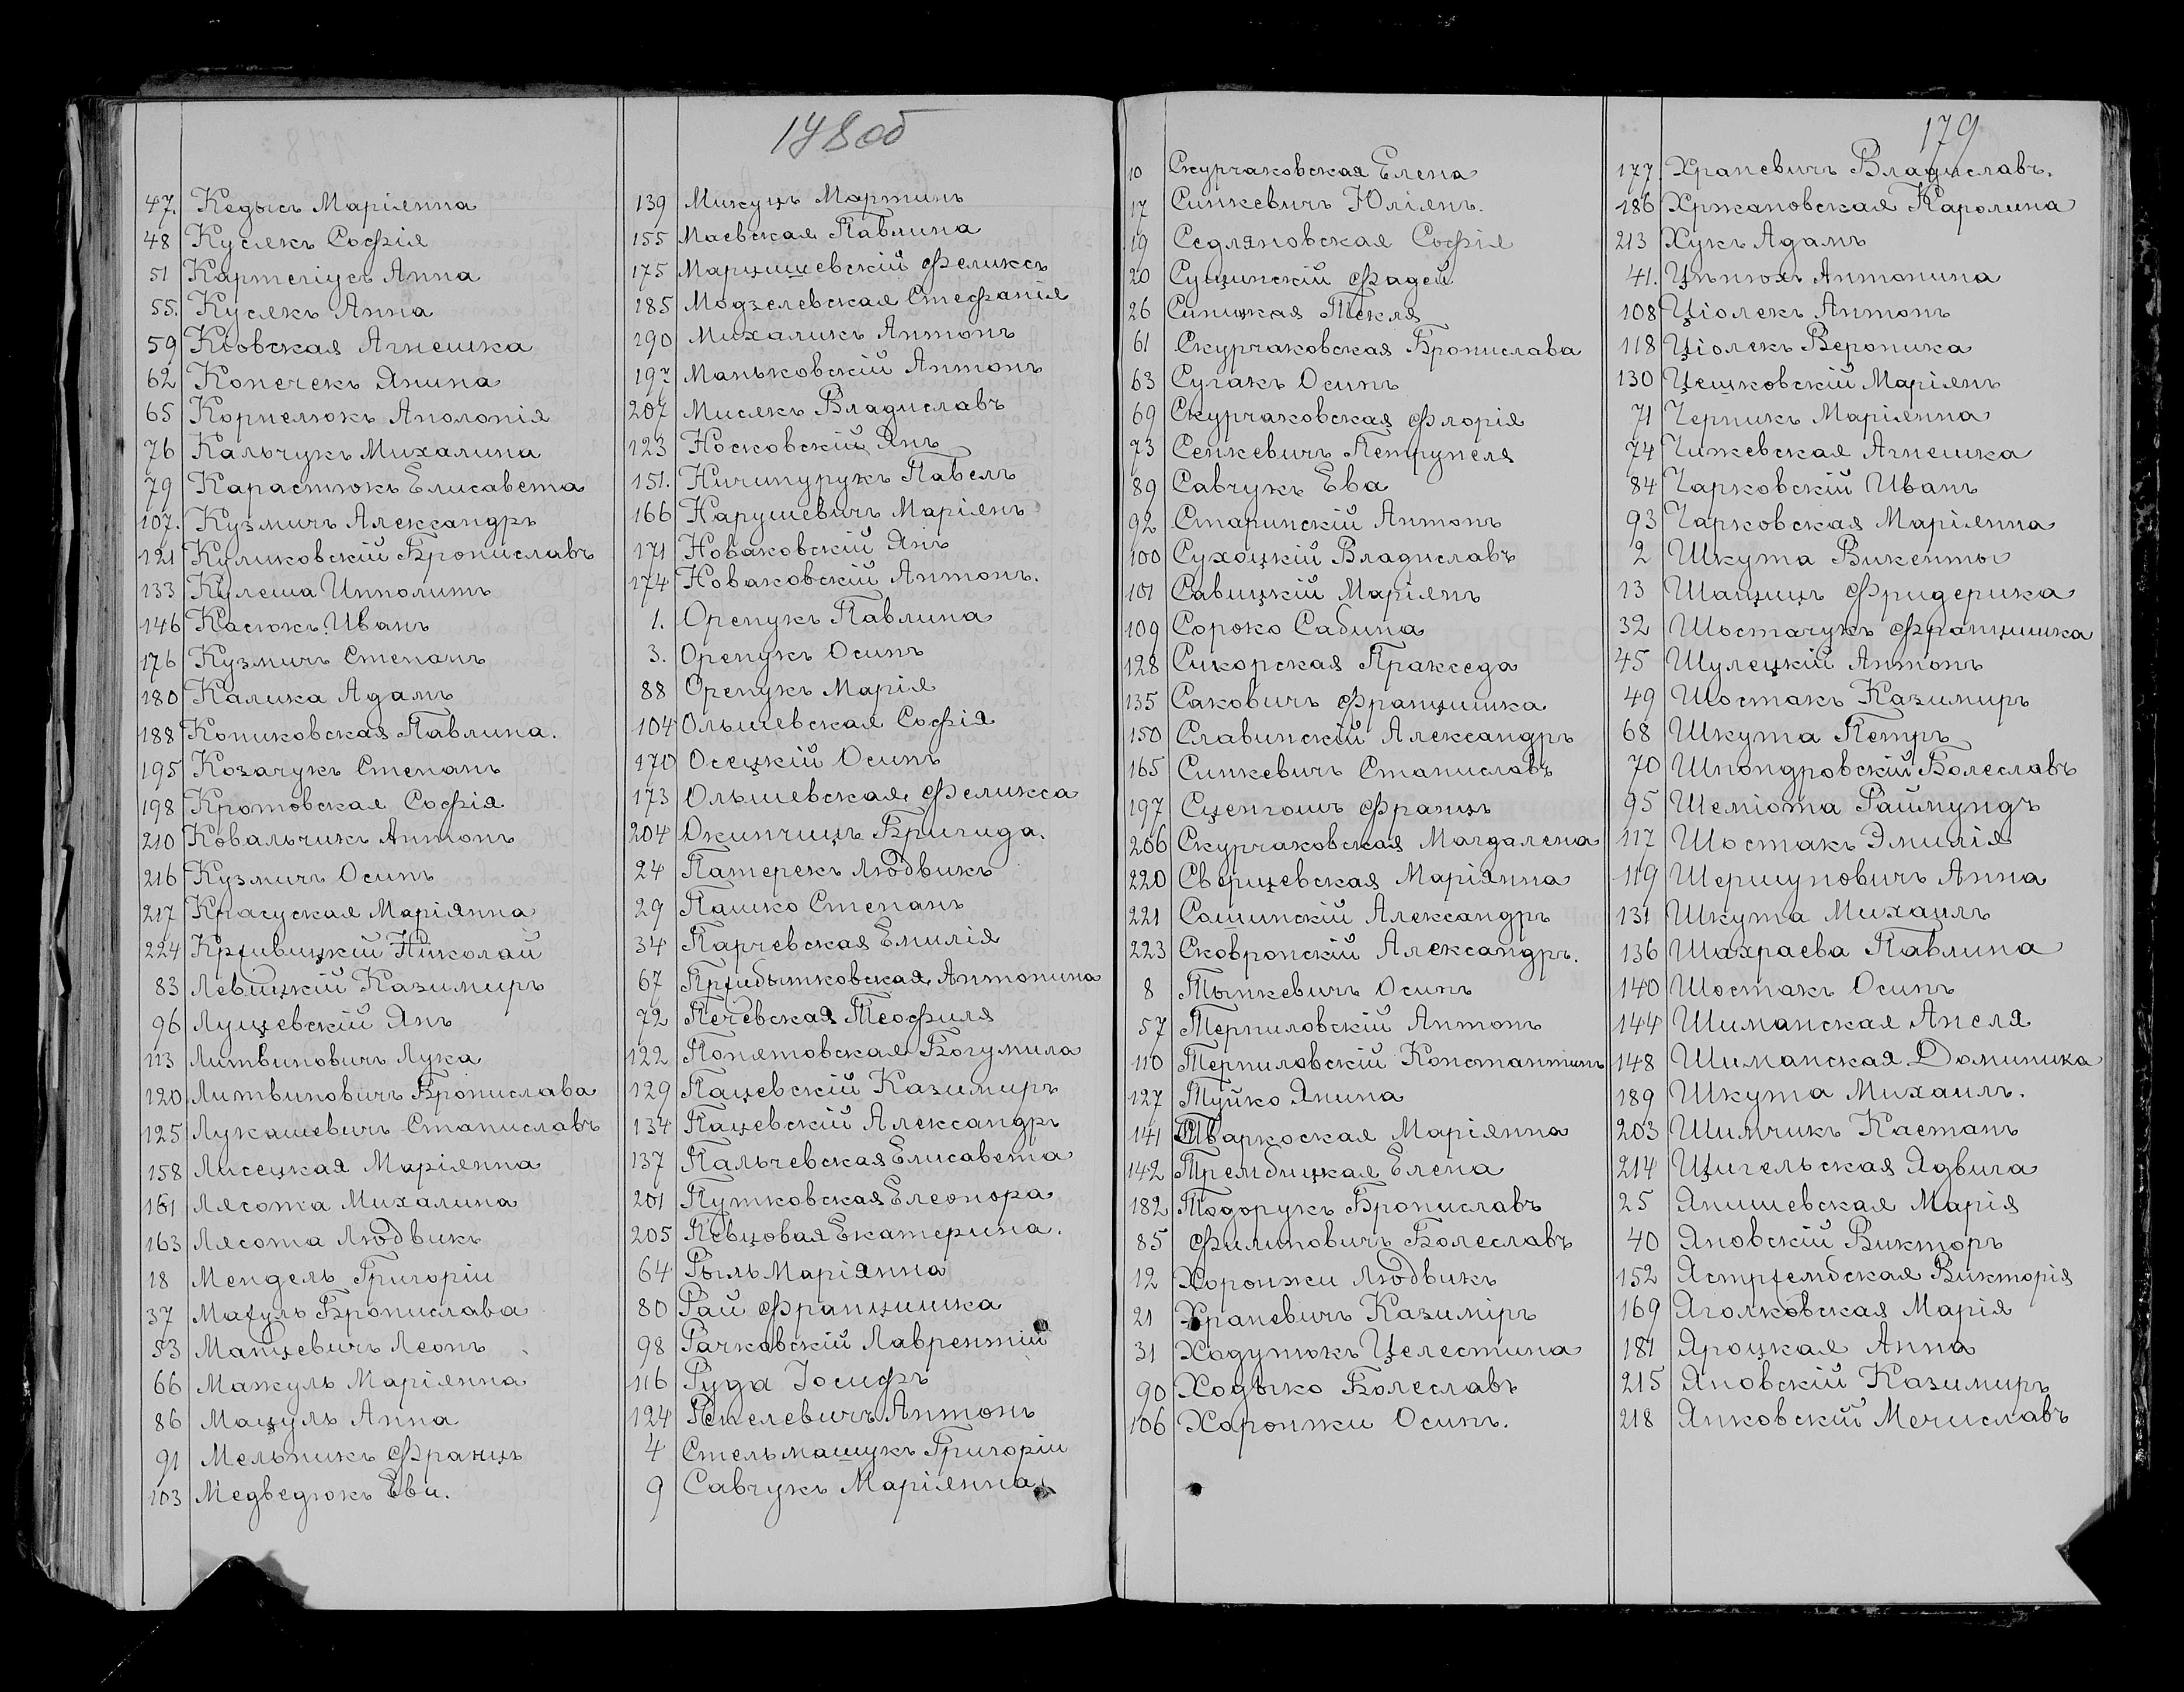 178 об
47. Кедысь Маріянна
48 Кусякъ Софія
51 Картегіусъ Анна
55. Кусякъ Анна
59 Кіовская Агнешка
62 Конечекъ Янина
65 Корнелюкъ Аполонія
76 Кальчукъ Михалина
79 Карастюкъ Елисавета
107. Кузмичъ Александръ
121 Куликовскій Брониславъ
133 Кулеша Ипполитъ
146 Касюкъ Иванъ
176 Кузмичъ Степанъ
180 Калика Адамъ
188 Кониковская Павлина.
195 Козачукъ Степанъ
198 Кротовская Софія
210 Ковальчикъ Антонъ
216 Кузмичъ Осипъ
217 Красуская Маріянна
224 Крживицкій Николай
83 Левицкій Казимиръ
96 Лущевскій Янъ
113 Литвиновичъ Лука
120 Литвиновичъ Бронислава
125 Лукашевичъ Станиславъ
158 Лисецкая Маріянна
161 Лясота Михалина
163 Лясота Людвикъ
18 Мендель Григоріи
37 Бронислава
53 Мацевичъ Леонъ
66 Мажуль Маріянна
86 Мацуль Анна
91 Мельникъ Францъ
103 Медведюкъ Еви.
139 Микуцъ Мартинъ
155 Маевская Павлина
175 Марцишевскій Феликсъ
185 Модзелевская Стефанія
190 Михаликъ Антонъ
192 Маньковскій Антонъ
207 Мисякъ Владиславъ
123 Носковскій Янъ
151. Ничипурукъ Павелъ
166 Нарушевичъ Маріянъ
171 Новаковскій Янъ
174 Новаковскій Антонъ.
1. Оренукъ Павлина
3. Оренукъ Осипъ
88 Оренукъ Марія
104 Ольшевская Софія
170 Осецкій Осипъ
173 Ольшевская Феликса
204 Окинчицъ Бригида.
24 Патерекъ Людвикъ
29 Пашко Степанъ
34 Парчевская Емилія
67 Пржибытковская Антонина
72 Печевская Теофиля
122 Понятовская Богумила
129 Пацевскій Казимиръ
134 Пацевскій Александръ
137 Пальчевская Елисавета
201 Путковская Елеонора
205 Певцовая Екатерина.
64 Рыль Маріянна
80 Рай Францишка
98 Рачковскій Лаврентій
116 Руда Іосифъ
124 Репелевичъ Антонъ
4 Стельмашукъ Григоріи
9 Савчукъ Маріянна
179
10 Скурчаковская Елена
17 Синкевичъ Юліянъ.
19 Седляновская Софія
20 Сущинскій Фадей
26 Синицкая Текля
61 Скурчаковская Бронислава
63 Сугакъ Осипъ
69 Скурчаковская Флорія
73 Сенкевичъ Петрунеля
89 Савчукъ Ева
92 Старинскій Антонъ
100 Сухоцкій Владиславъ
101 Савицкій Маріянъ
109 Сороко Сабина
128 Сикорская Пракседа
135 Саковичъ Францишка
150 Славинскій Александръ
165 Синкевичъ Станиславъ
197 Сценгошъ Францъ
206 Скурчаковская Магдалена
220 Сверщевская Маріянна
221 Сашинскій Александръ
223 Сковронскій Александръ.
8 Тынкевичъ Осипъ
57 Терпиловскій Антонъ
110 Терпиловскій Константинъ
127 Туйко Янина
141 Тваркоская Маріянна
142 Трембицкая Елена
182 Тодорукъ Брониславъ
85 Филиповичъ Болеславъ
12 Хоронжи Людвикъ
21 Храневичъ Казиміръ
31 Ходутюкъ Целестина
90 Ходыко Болеславъ
106 Харонжи Осипъ.
177 Храневичъ Владиславъ.
186 Хржановская Каролина
213 Хукъ Адамъ
41. Антонина
108 Ціолекъ Антонъ
118 Ціолекъ Вероника
130 Цешковскій Маріянъ
71 Черникъ Маріянна
74 Чижевская Агнешка
84 Чарковскій Иванъ
93 Чарковская Маріянна
2 Шкута Викенты
13 Шащицъ Фридерика
32 Шостачукъ Францишка
45 Шулецкій Антонъ
49 Шостакъ Казимиръ
68 Шкута Петръ
70 Шпондровскій Болеславъ
95 Шеміота Раймундъ
117 Шостакъ Эмилія
119 Шершуновичъ Анна
131 Шкута Михаилъ
136 Шахраева Павлина
140 Шостакъ Осипъ
144 Шиманская Анеля
148 Шиманская Доминика
189 Шкута Михаилъ.
203 Шимчикъ Каетанъ
214 Щигельская Ядвига
25 Янишевская Марія
40 Яновскій Викторъ
152 Ястржембская Викторія
169 Яголковская Марія
181 Яроцкая Анна
215 Яновскій Казимиръ
218 Янковскій Мечиславъ